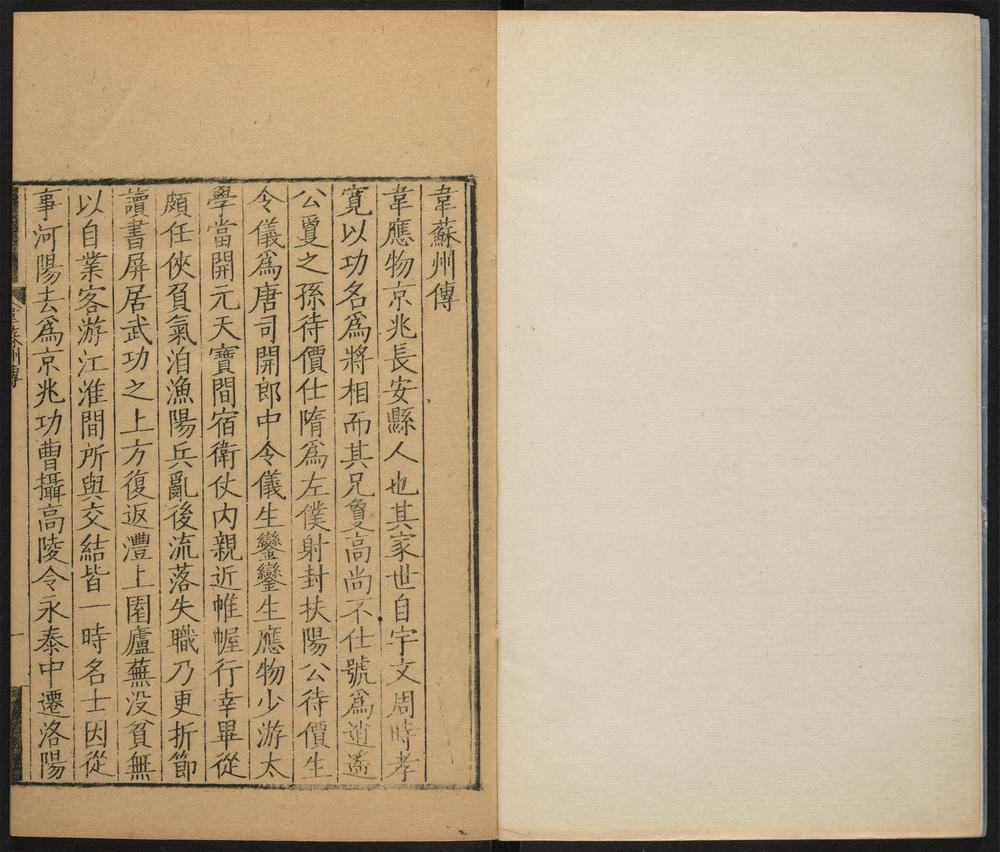 韋蘇州傳
韋應物京兆長安縣人也其家世自宇文周時孝
寛以功名爲將相而其兄敻高尚不仕號爲逍遥
公敻之孫待價仕隋爲左僕射封扶陽公待價生
令儀爲唐司開郎中令儀生鑾鑾生應物少游太
學當開元天寶間宿衛仗内親近帷幄行幸畢從
頗任俠負氣洎漁陽兵亂後流落失職乃更折節
讀書屏居武功之上方復返灃上園廬蕪没貧無
以自業客游江淮間所與交結皆一時名士因從
事河陽去爲京兆功曹攝高陵令永泰中遷洛陽
韋蘇州傳
一